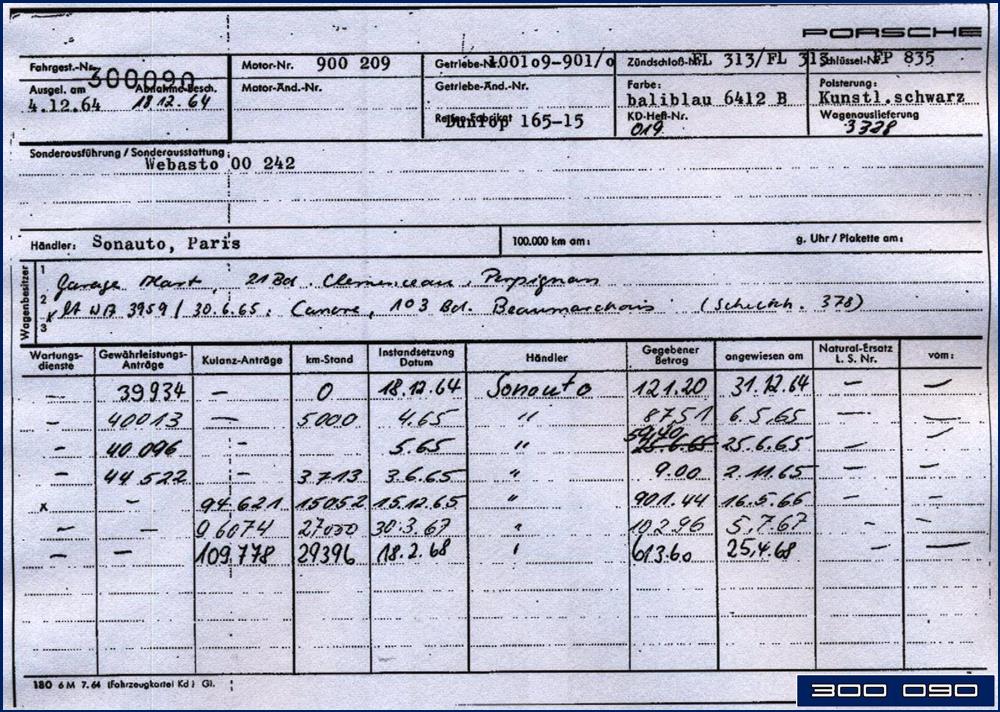 PORSCHE
Fahrgest.-Nr. 300090 Motor-Nr. 900 209 Getriebe-Nr. 100109-901/0 Zündschloß-Nr. FL 313/FL 313 Schlüssel-Nr. FP 835
Ausgel. am 4.12.64 Abnahme-Besch. 18.12.64 Motor-Änd.-Nr. Getriebe-Änd.-Nr. Farbe: baliblau 6412 B Polsterung: Kunstl.schwarz
Reifen-Fabrikat Dunlop 165-15 KD-Heft-Nr. 019 Wagenauslieferung 3328
Sonderausführung / Sonderausstattung:
Webasto 00 242
Händler: Sonauto, Paris 100.000 km am: g. Uhr / Plakette am:
Wagenbesitzer
1 Garage 21 Bd. Clemenceau, Perpignan
2 x lt WA 3959 / 30.6.65: Canore, 103 Bd. Beaumarchais 378)
3
Wartungsdienste Gewährleistungs-Anträge Kulanz-Anträge km-Stand Instandsetzung Datum Händler Gegebener Betrag angewiesen am Natural-Ersatz L. S. Nr. vom:
— 39934 — 0 18.12.64 Sonauto 121.20 31.12.64 — —
— 40013 — 5000 4.65 " 87.51 6.5.65 — —
— 40096 - 5.65 " 59,40 25.6.65 25.6.65 — —
— 44522 - 3713 3.6.65 " 9.00 2.11.65 — —
x - 94621 15052 15.12.65 " 901.44 16.5.66 — —
— — 96074 27000 30.3.67 " 102.96 5.7.67 - -
— — 109.778 29396 18.2.68 " 613.60 25.4.68 — —
180 6 M 7.64 (Fahrzeugkartei Kd) Gl.
300 090